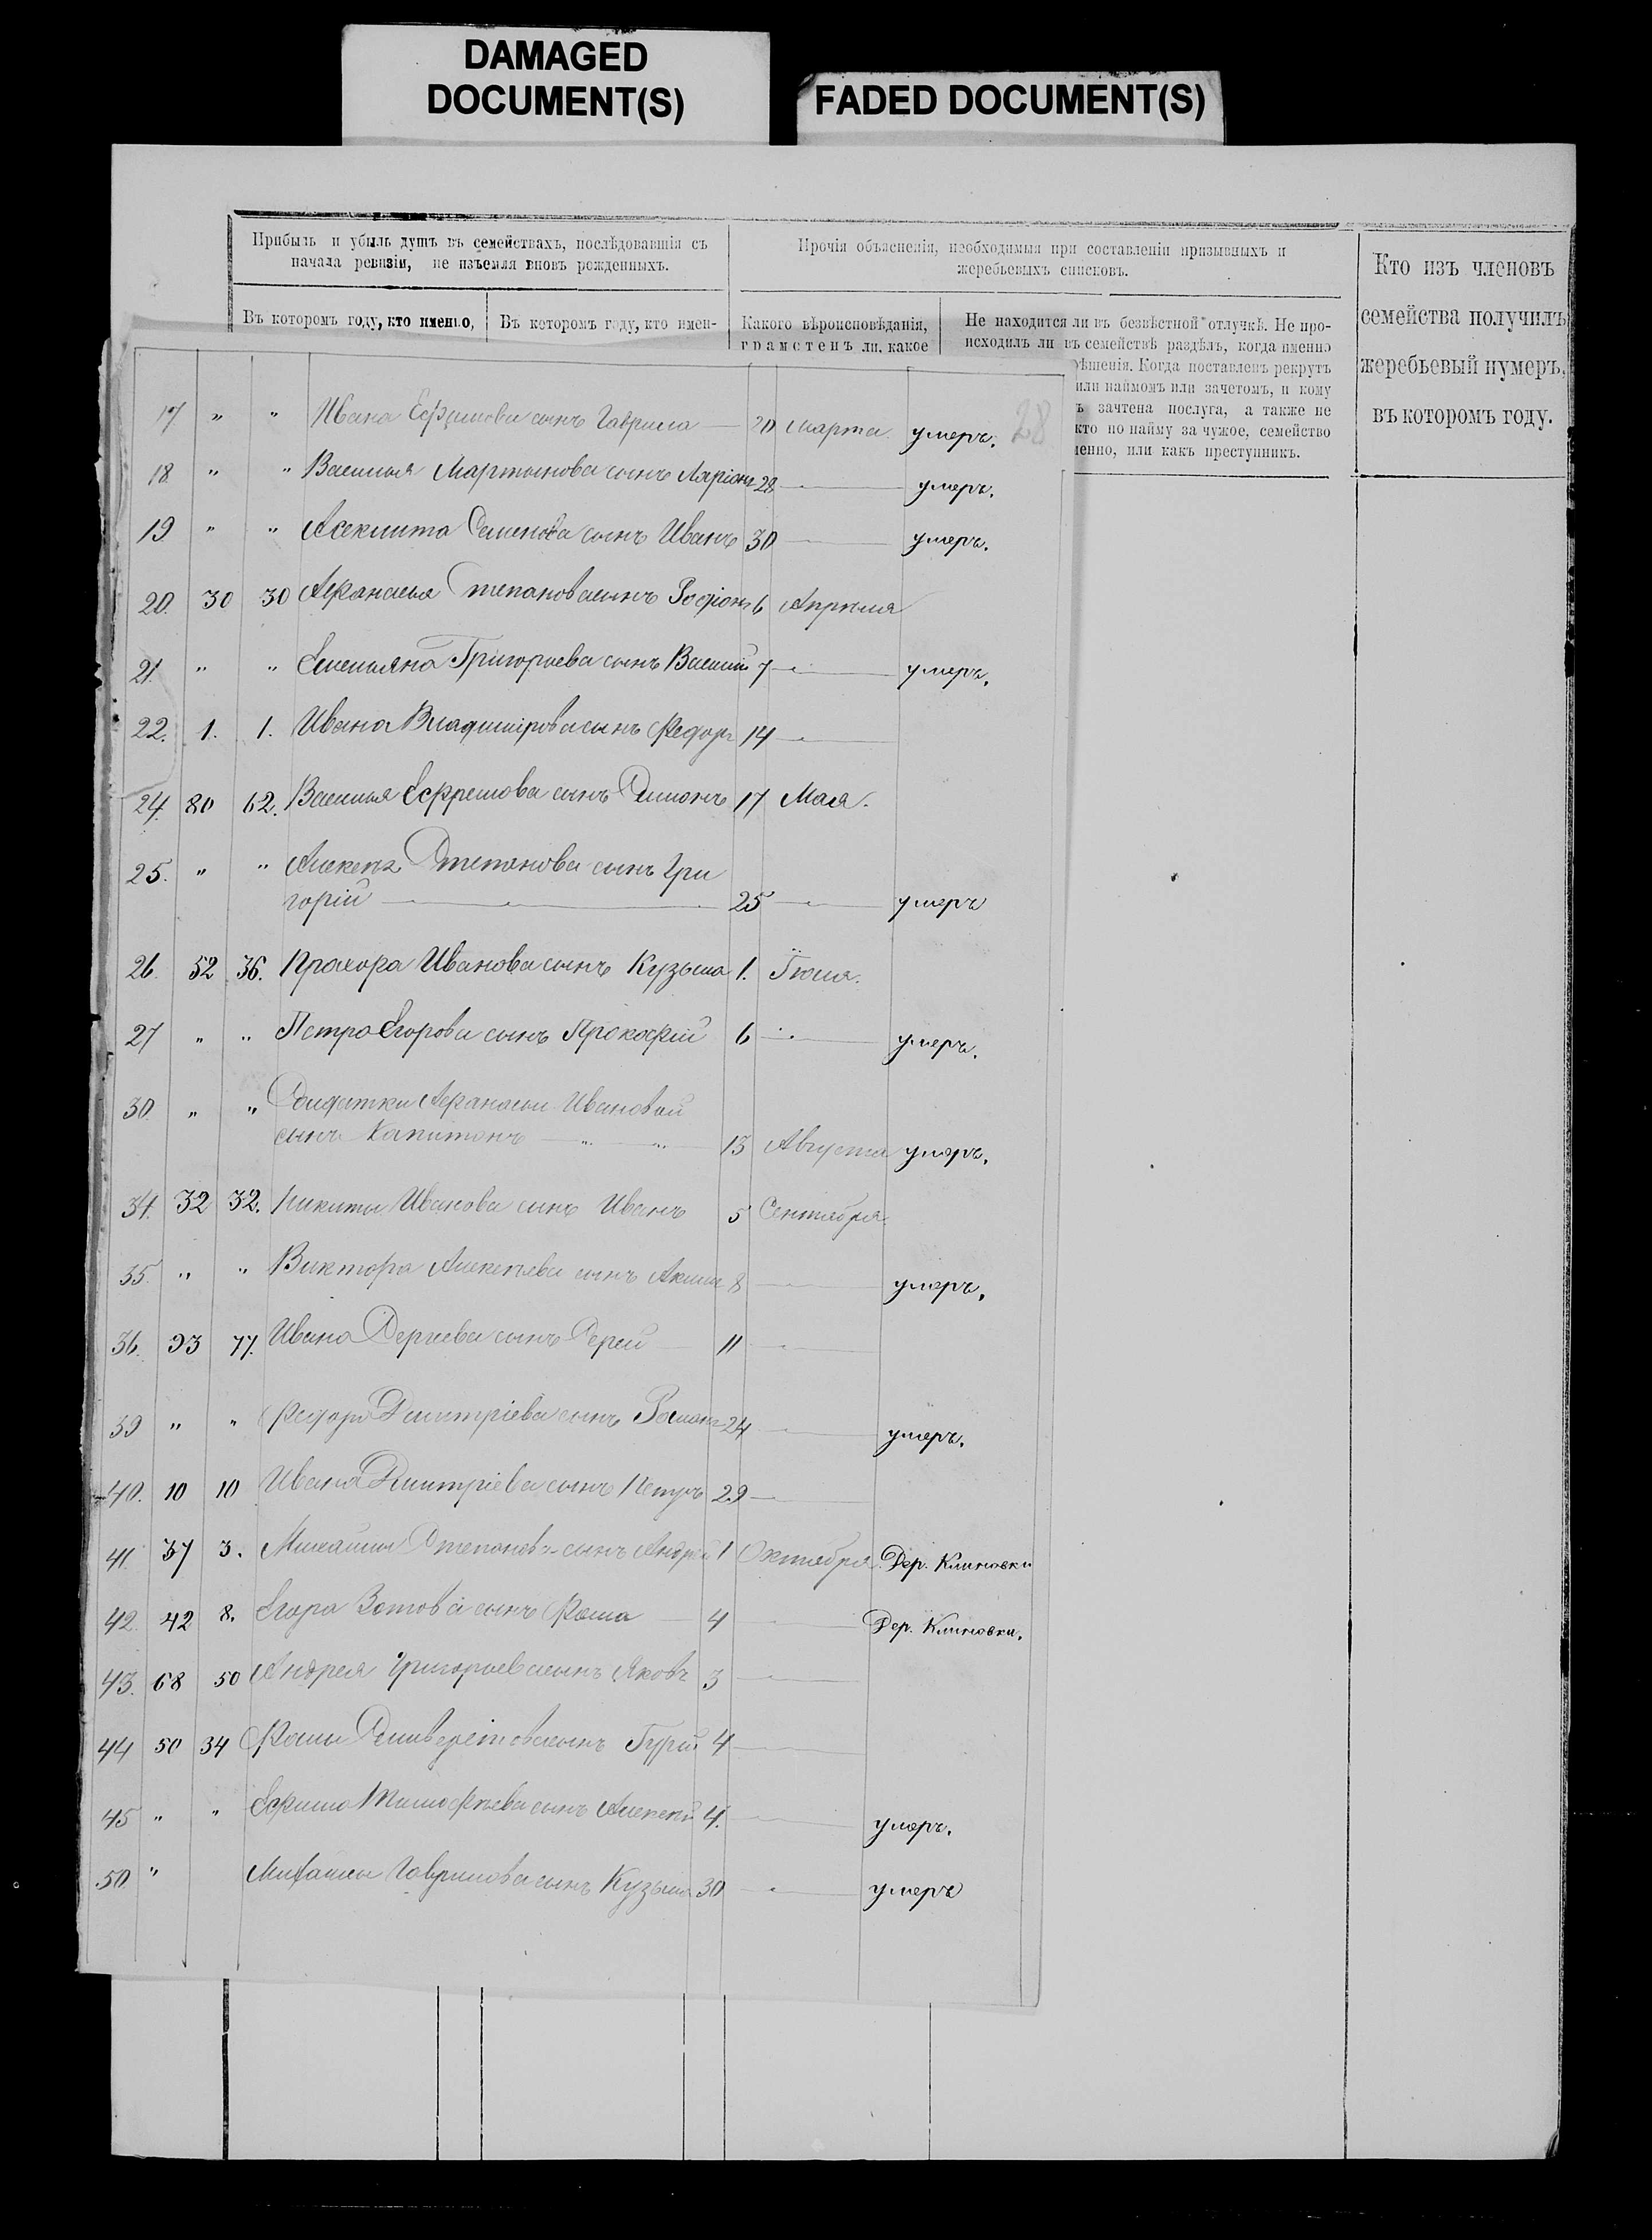 DAMAGED
DOCUMENT(S)
FADED DOCUMENT(S)
Прибыль и убыль душъ въ семействахъ, послѣдовавшія съ
начала ревизіи, не изъемля вновь рожденныхъ.
Прочія объясненія, необходимыя при составленіи призывныхъ и
жеребьевыхъ списковъ.
Кто изъ членовъ
семейства получилъ
жеребьевый нумеръ,
въ которомъ году.
Въ которомъ году, кто именно,
Въ которомъ году, кто имен-
Какого вѣроисповѣданія,
грамотенъ ли, какое
Не находится ли въ безвѣстной отлучкѣ. Не про-
исходилъ ли въ семействѣ раздѣлъ, когда именно
рѣшенія. Когда поставленъ рекрутъ
или наймомъ или зачетомъ, и кому
ъ зачтена послуга, а также не
кто по найму за чужое, семейство
менно, или какъ преступникъ.
28
17 " " Ивана Ефимова сынъ Гаврила 20 марта умеръ.
18 " " Василья Мартынова сынъ Ларіонъ 28 умеръ.
19 " " Семенова сынъ Иванъ 30 умеръ.
20. 30 30 Афанасья Степанова сынъ Родіонъ 6 Апрѣля
21. " " Емельяна Григорьева сынъ Василий 7 умеръ.
22. 1. 1. Ивана Владимірова сынъ Федоръ 14
24. 80 62. Василья Ефремова сынъ Симонъ 17 Мая.
25. " " Алексѣя Степанова сынъ Гри
горій 25 умеръ
26. 52 36. Прохора Иванова сынъ Кузьма 1. Іюля.
27 " " Петра Егорова сынъ Прокофій 6 умеръ.
30. " " Солдатки Афанасьи Ивановой
сынъ Капитонъ 13 Августа умеръ.
34. 32 32. Никиты Иванова сынъ Иванъ 5 Сентября.
35. " " Виктора Алексѣева сынъ Акимъ 8 умеръ.
36. 93 77. Ивана Сергѣева сынъ 11
39 " " Федора Дмитріева сынъ Романъ 24 умеръ.
40. 10 10 Ивана Дмитріева сынъ Петръ 29
41. 37 3. Михайлы Степанова сынъ Андрей 1 Октября. Дер. Климовки
42. 42 8. Егора Зотова сынъ Фома 4 Дер. Климовки.
43. 68 50 Андрея Григорьева сынъ Яковъ 3
44 50 34 Фомы Селиверстова сынъ Гурій 4
45 " " Ефима Тимофѣева сынъ Алексѣй 4. умеръ.
50. " Михайлы Гаврилова сынъ Кузьма 30 умеръ